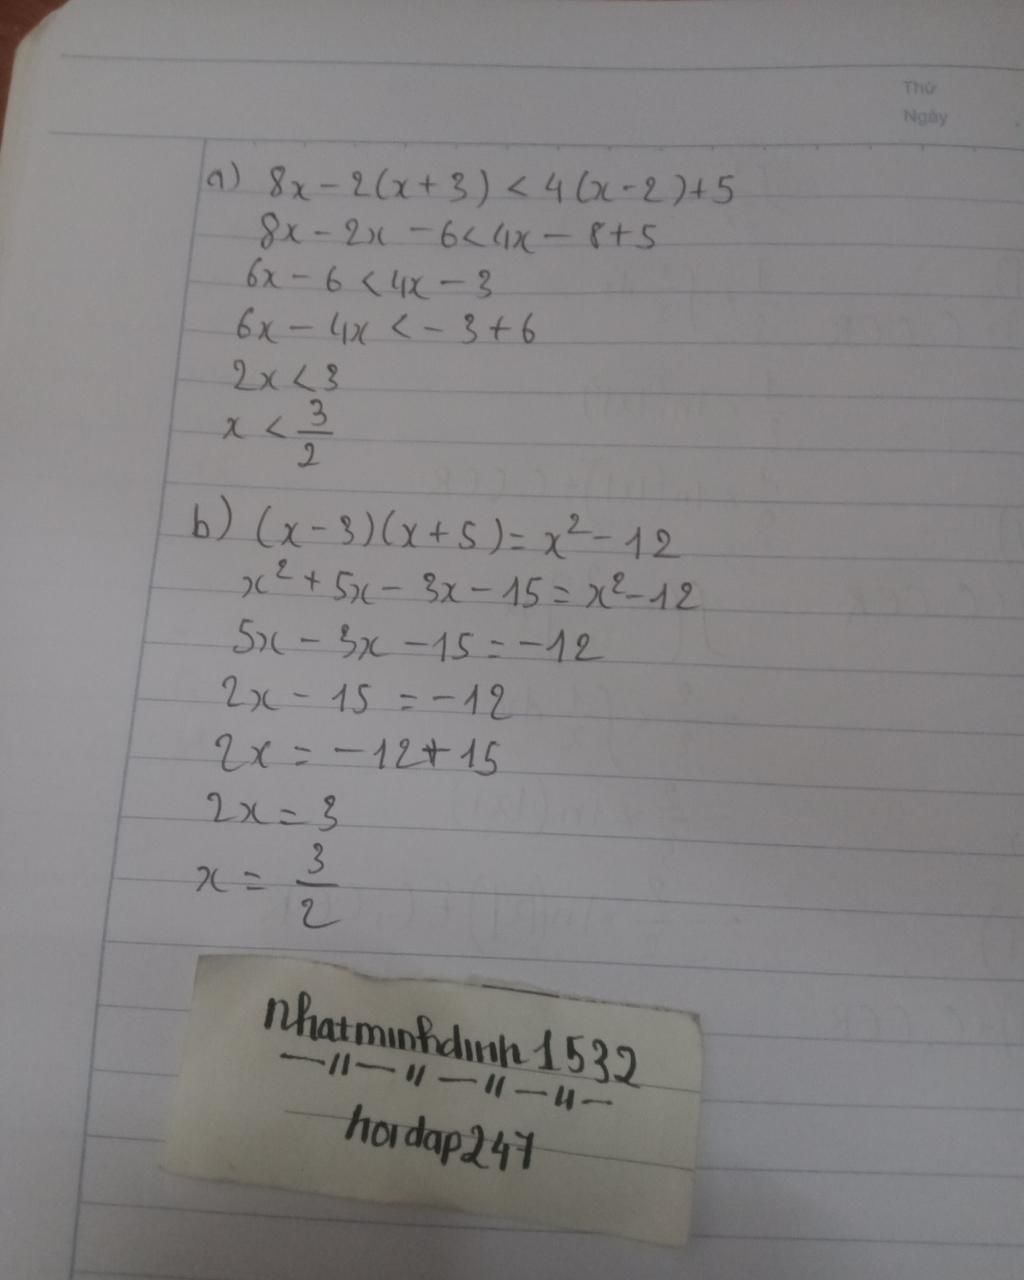 Thứ
Ngày
a) 8x - 2(x + 3) < 4(x - 2) + 5
8x - 2x - 6 < 4x - 8 + 5
6x - 6 < 4x - 3
6x - 4x < - 3 + 6
2x < 3
x < 3/2
b) (x - 3)(x + 5) = x² - 12
x² + 5x - 3x - 15 = x² - 12
5x - 3x - 15 = -12
2x - 15 = -12
2x = -12 + 15
2x = 3
x = 3/2
nhatminhdinh1532
hoidap247